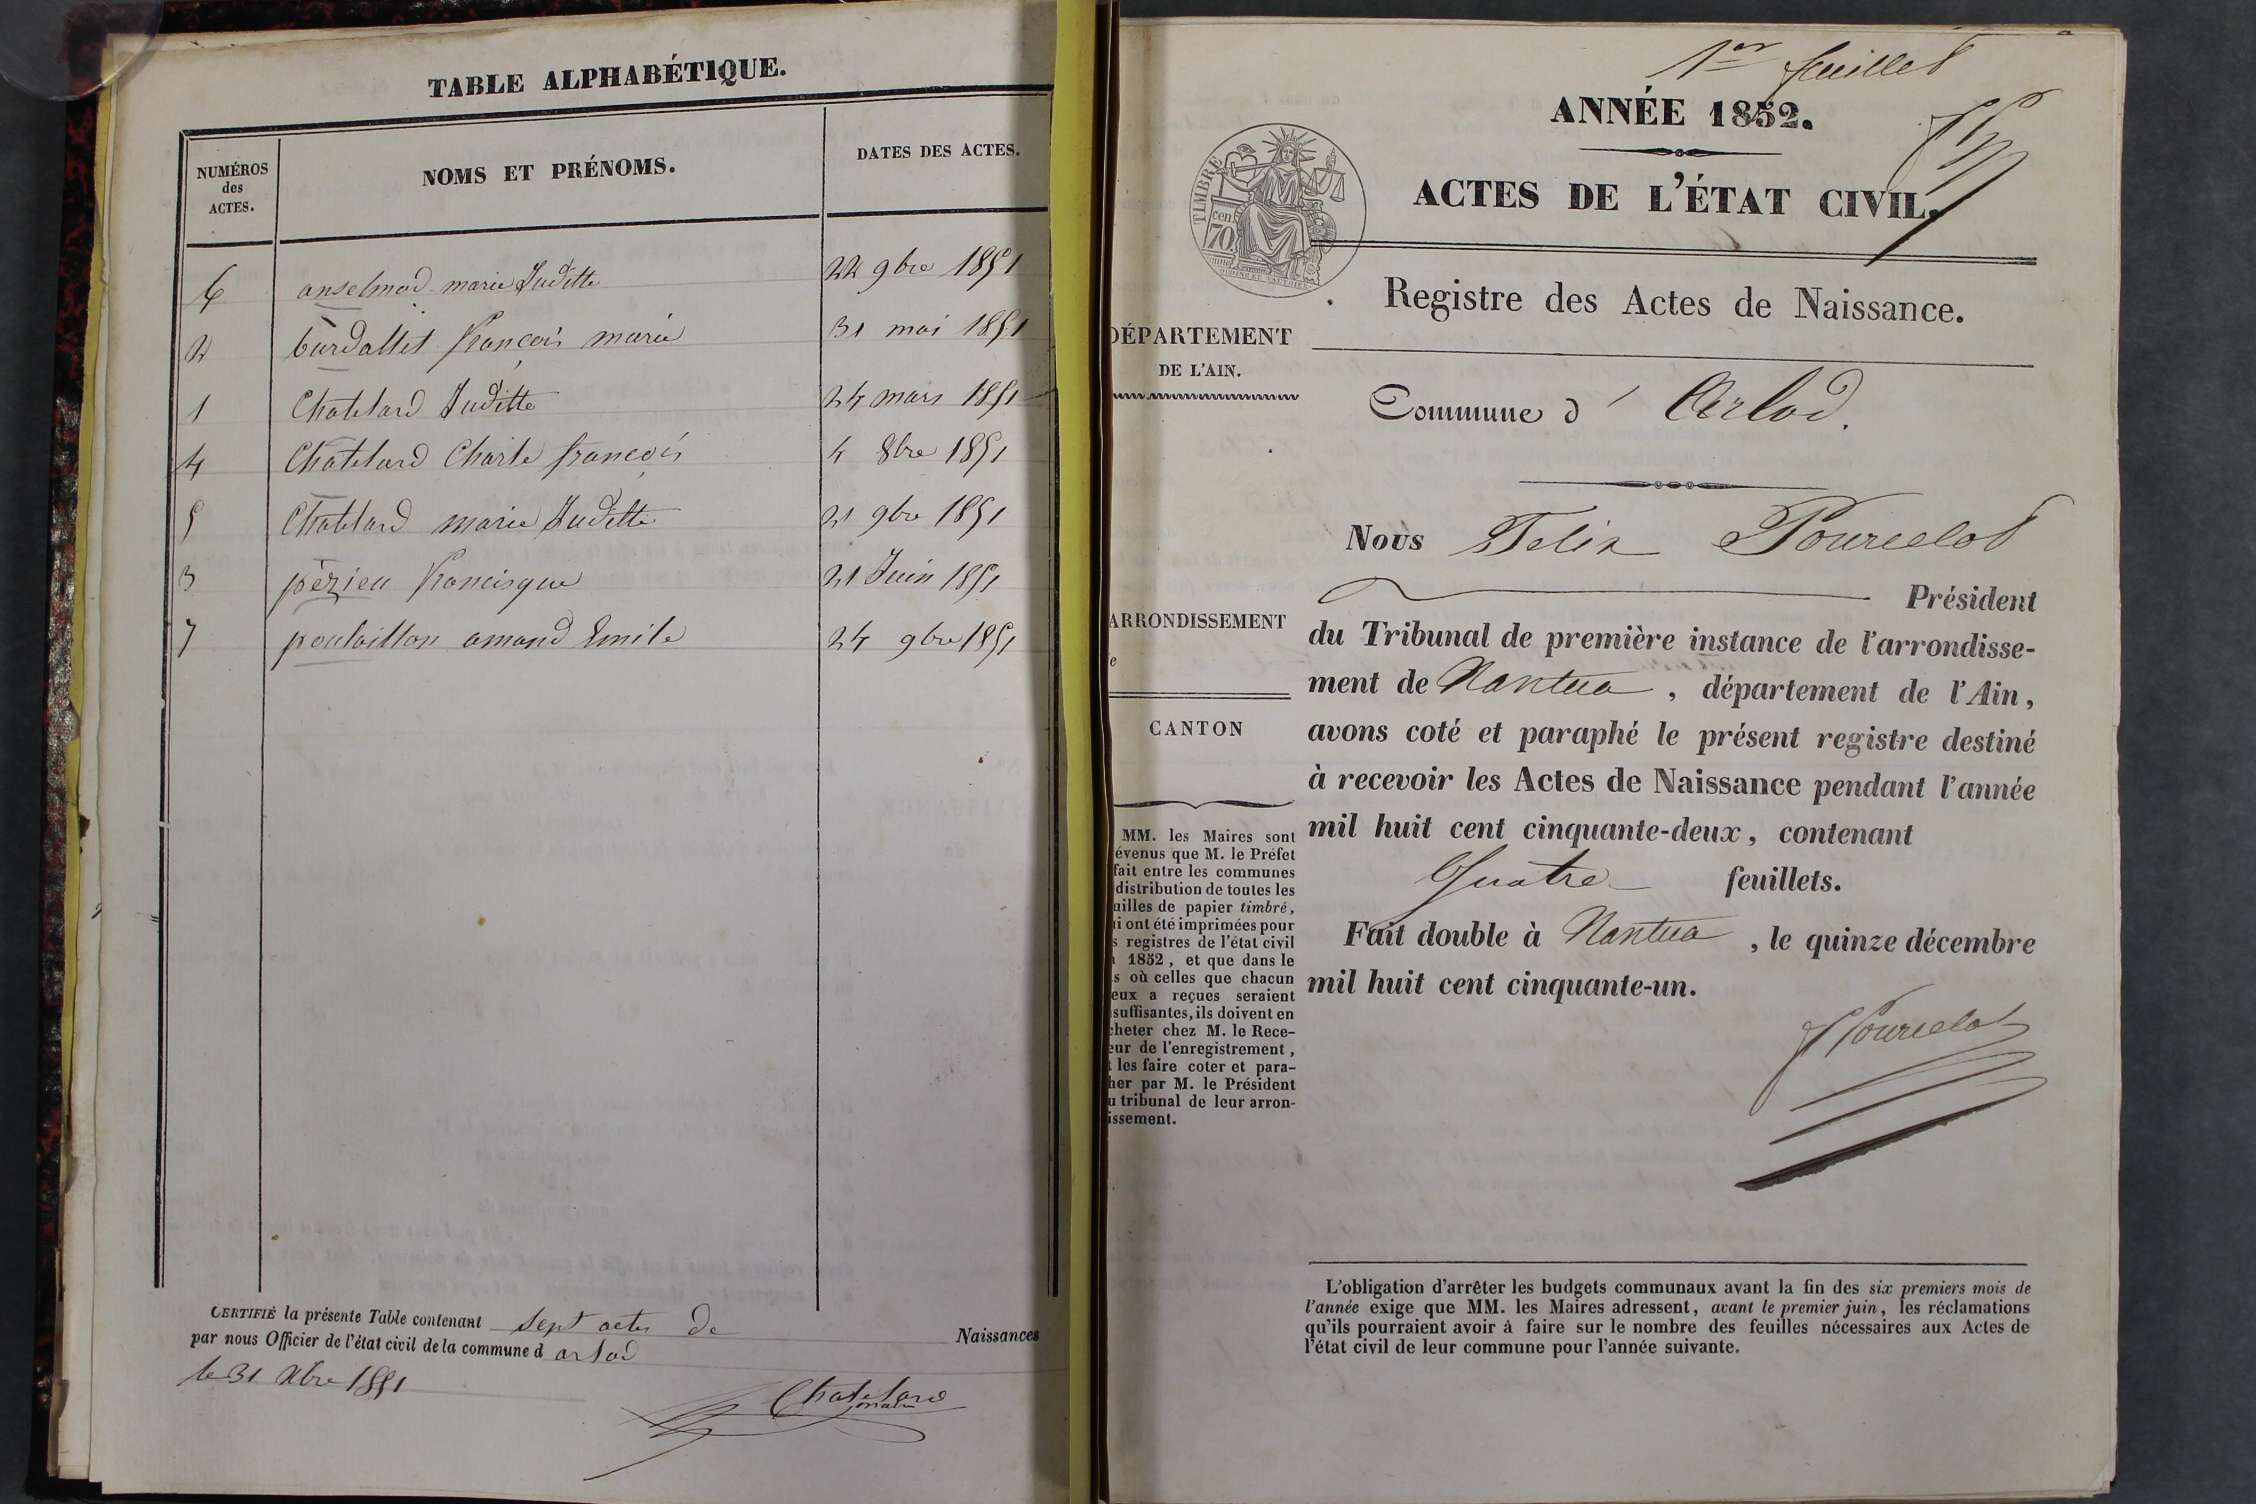 TABLE ALPHABÉTIQUE.
NUMÉROS
des
ACTES.
NOMS ET PRÉNOMS.
DATES DES ACTES.
6 anselmod marie Juditte 22 9bre 1851
2 burdallet françois marie 31 mai 1851
1 Chatelard Juditte 24 mars 1851
4 Chatelard Charle françois 4 8bre 1851
5 Chatelard marie Juditte 21 9bre 1851
3 pèzieu francisque 21 Juin 1851
7 poulaillon amand Emile 24 9bre 1851
CERTIFIÉ la présente Table contenant sept actes de Naissances
par nous Officier de l'état civil de la commune d arlod
le 31 Xbre 1851
Chatelard
maire
1er feuillet
ANNÉE 1852.
ACTES DE L'ÉTAT CIVIL.
TIMBRE
70 cen
Registre des Actes de Naissance.
DÉPARTEMENT
DE L'AIN.
Commune d' Arlod.
Nous Felix Pourcelot
Président
ARRONDISSEMENT
du Tribunal de première instance de l'arrondisse-
ment de Nantua, département de l'Ain,
CANTON
avons coté et paraphé le présent registre destiné
à recevoir les Actes de Naissance pendant l'année
mil huit cent cinquante-deux, contenant
Quatre feuillets.
Fait double à Nantua, le quinze décembre
mil huit cent cinquante-un.
Pourcelot
MM. les Maires sont
évenus que M. le Préfet
fait entre les communes
distribution de toutes les
uilles de papier timbré,
i ont été imprimées pour
s registres de l'état civil
1852, et que dans le
s où celles que chacun
eux a reçues seraient
suffisantes, ils doivent en
cheter chez M. le Rece-
eur de l'enregistrement,
les faire coter et para-
her par M. le Président
u tribunal de leur arron-
issement.
L'obligation d'arrêter les budgets communaux avant la fin des six premiers mois de
l'année exige que MM. les Maires adressent, avant le premier juin, les réclamations
qu'ils pourraient avoir à faire sur le nombre des feuilles nécessaires aux Actes de
l'état civil de leur commune pour l'année suivante.